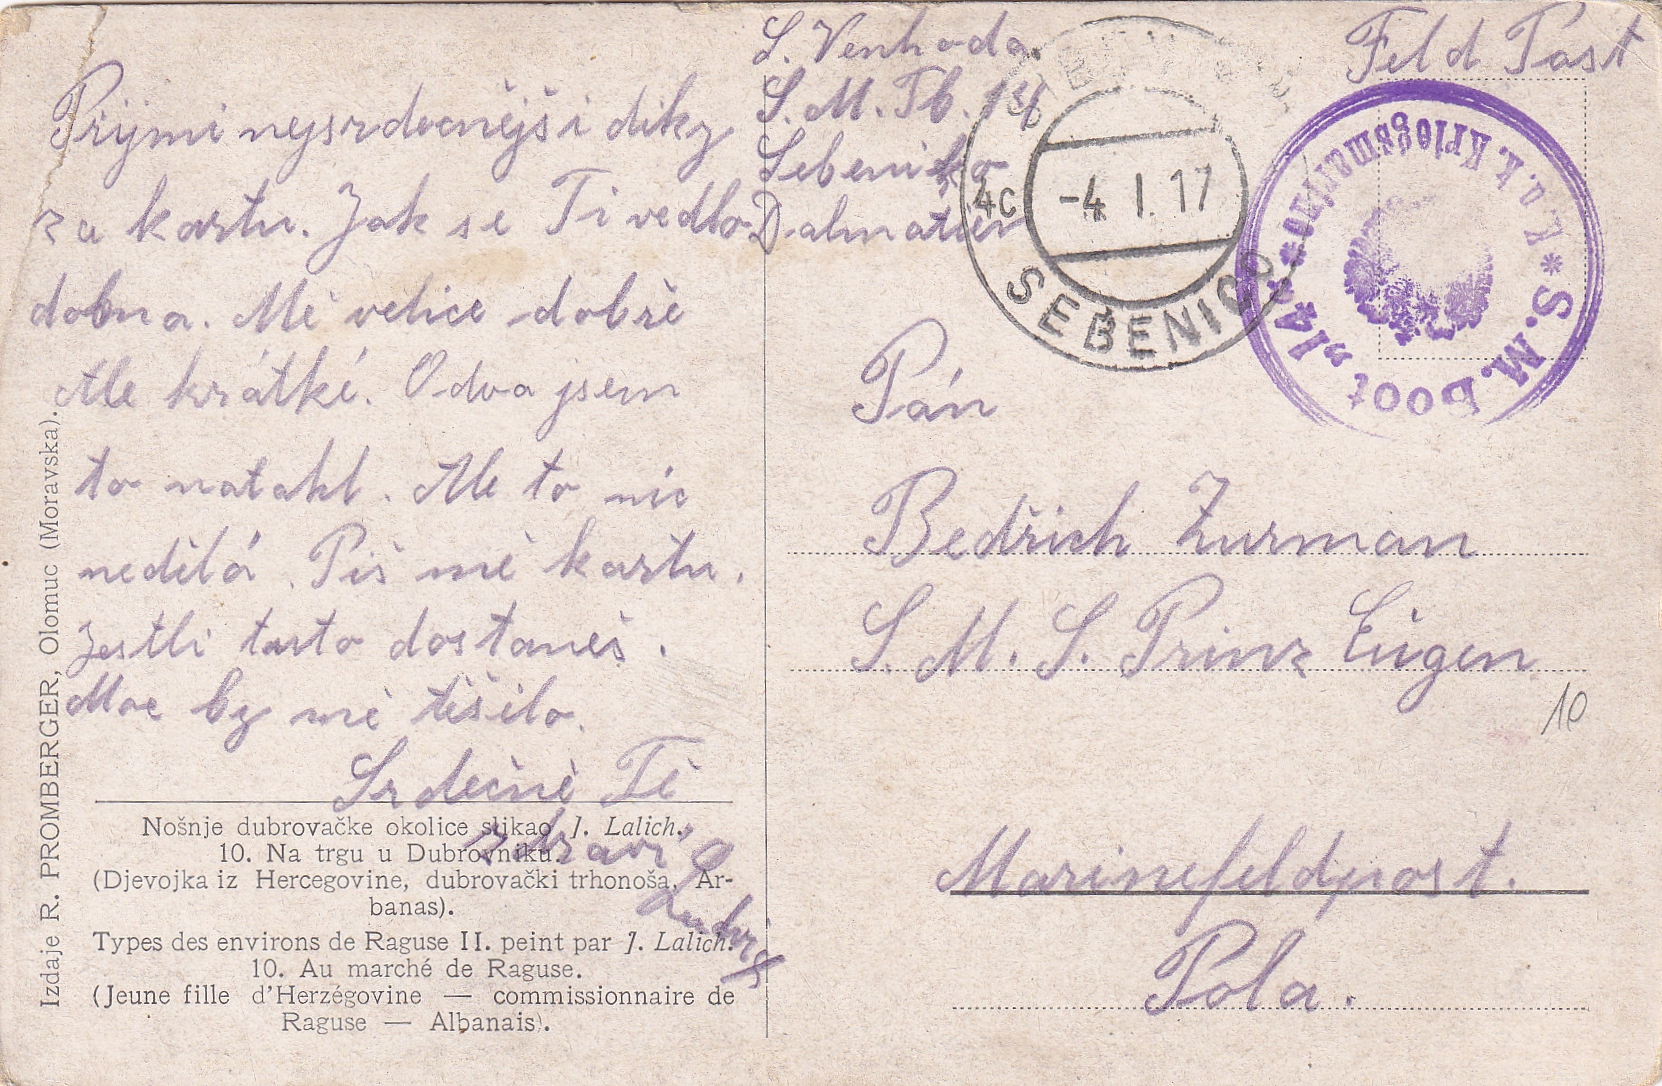 Přijmi nejsrdečnějši diky
za kartu. Jak se Ti vedlo
doma. Mě velice dobře
Ale krátké. Odva jsem
to natahl. Ale to nic
nedělá. Piš mě kartu.
Jestli tuto dostaneš.
Moc by mě těšilo.
Srdečně Tě
zdraví
L. Venhoda
S. M. Tb. 14
Sebeniko
Dalmatien
Feld Post
4c
-4. I. 17
SEBENICO
* K. u. k. Kriegsmarine * S. M. Boot „14“
Pán
Bedřich Zurman
S. M. S. Prinz Eugen
10
Marinefeldpost.
Pola.
Nošnje dubrovačke okolice slikao J. Lalich.
10. Na trgu u Dubrovniku.
(Djevojka iz Hercegovine, dubrovački trhonoša, Ar-
banas).
Types des environs de Raguse II. peint par J. Lalich.
10. Au marché de Raguse.
(Jeune fille d'Herzégovine — commissionnaire de
Raguse — Albanais).
Izdaje R. PROMBERGER, Olomuc (Moravska).